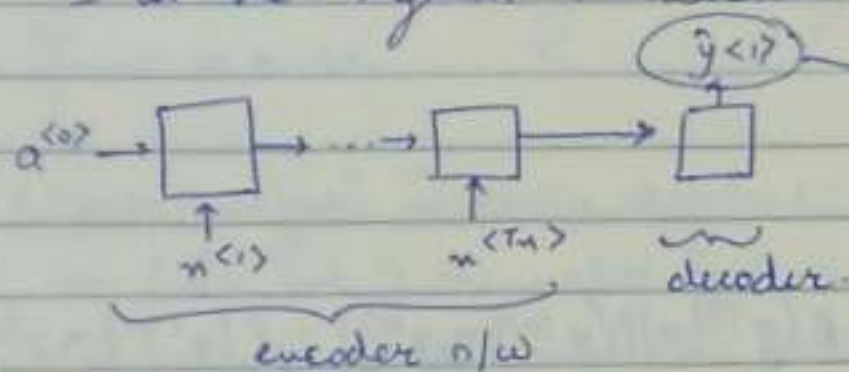 ŷ<1>
a<0>
x<1>
x<Tx>
decoder
encoder n/w